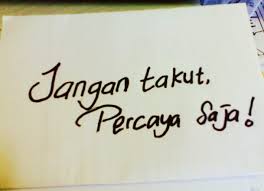 Jangan takut,
Percaya Saja!